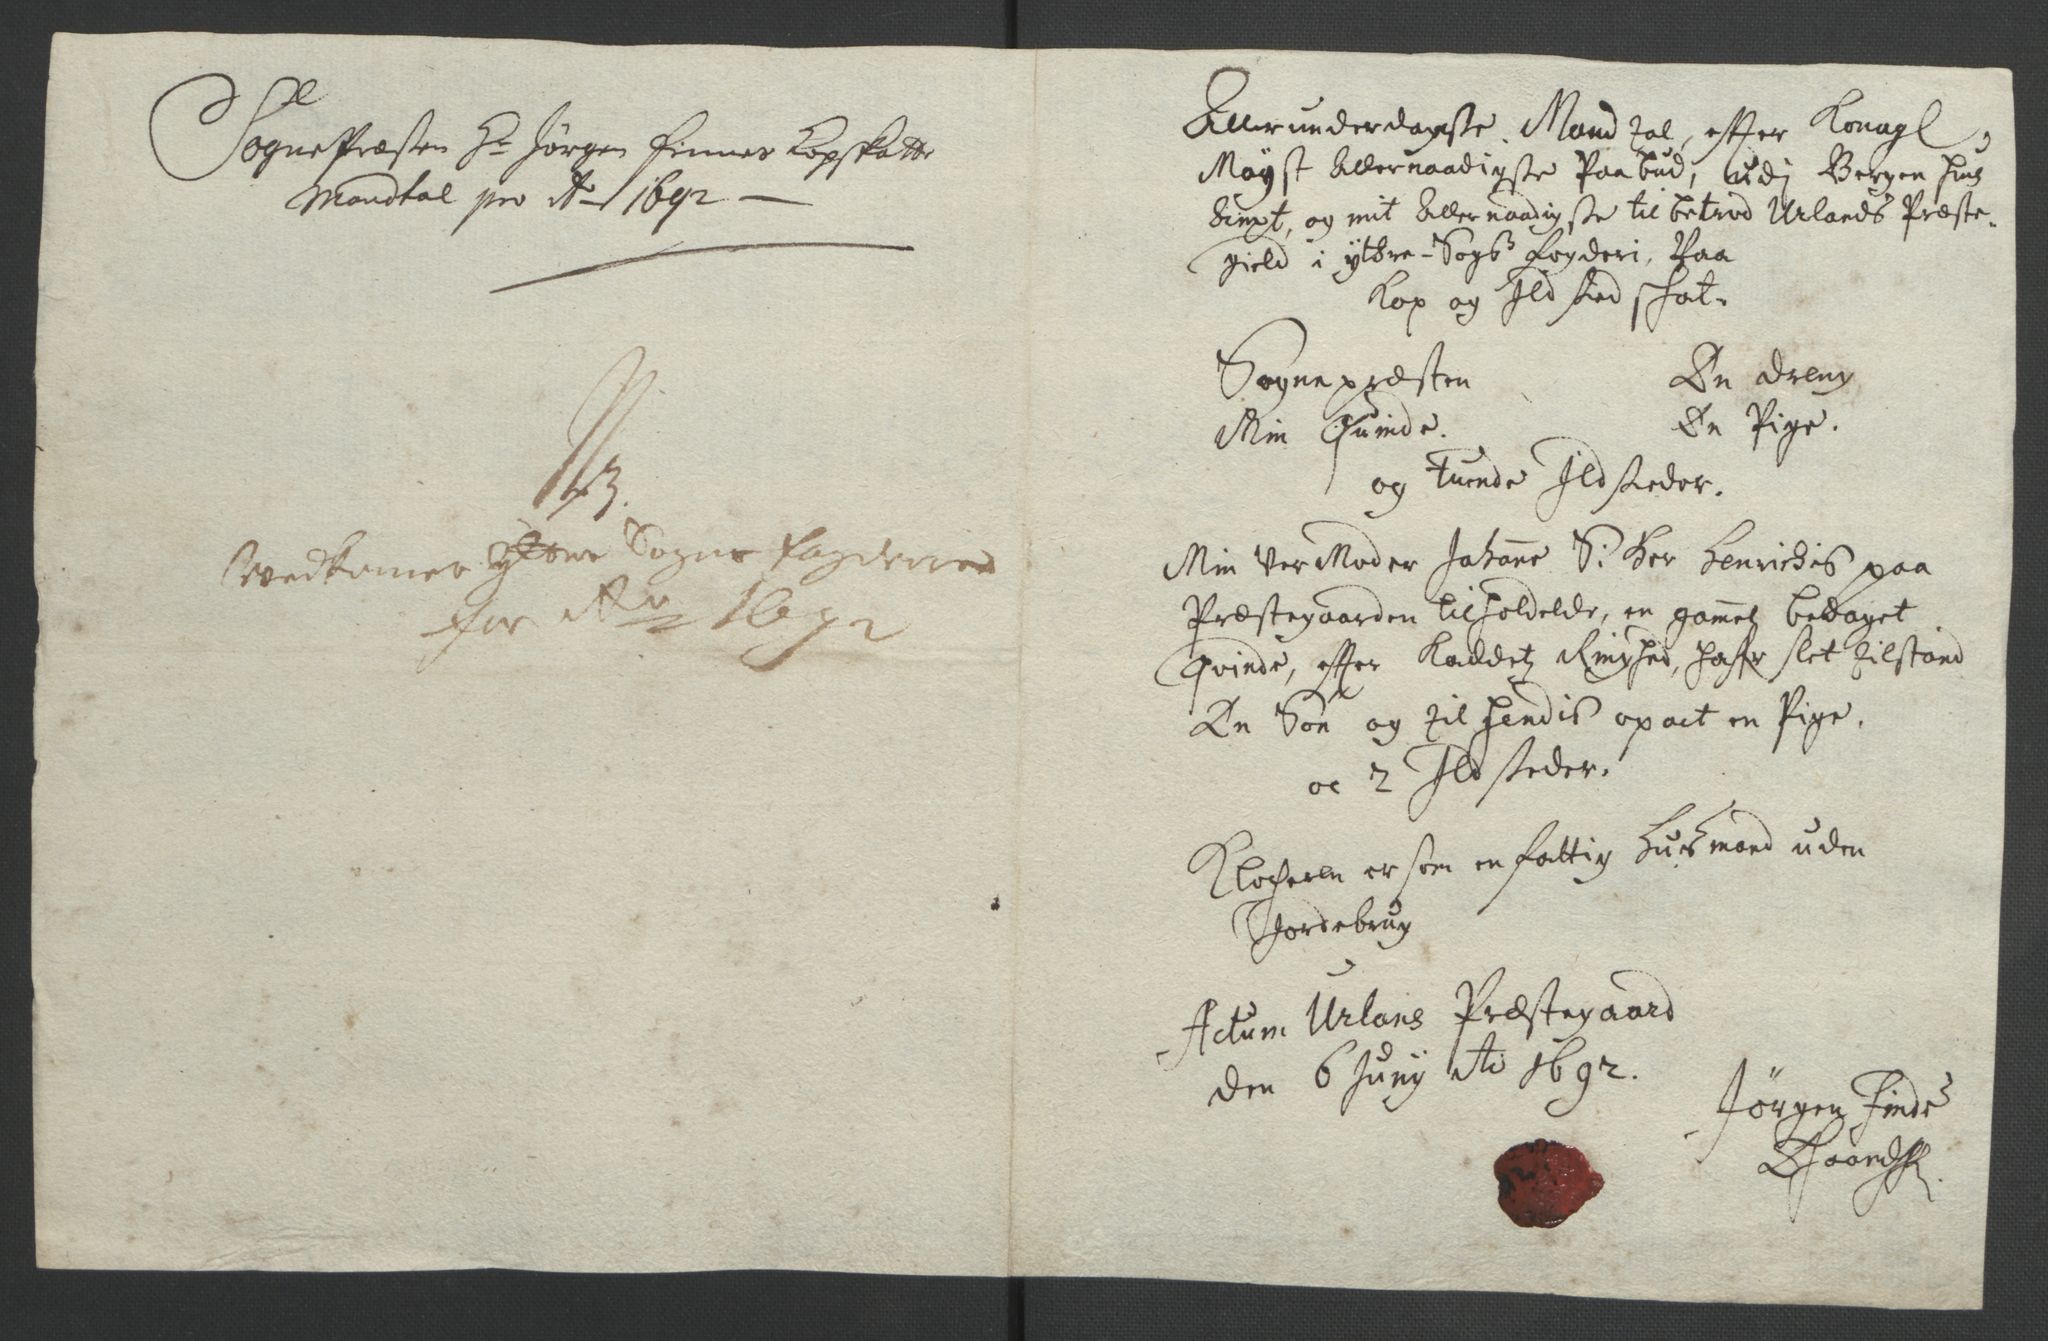 SognePræsten Hr Jørgen Finnes Kopskatte
Mandtal pro Ao 1692
N 3.
Vedkomer Yttre Sogns Fogderie
for Ao 1692
Allerunderdanigste Mandtal, effter Konngl
Mayst Allernaadigste Paabud, udj Bergenhus
Ampt, og mit Allernaadigste tilbetrod Urlands Præste-
gield i yttre-Sogs Fogderi, Paa
Kop og Ildsted schat.
Sognepræsten En dreng
Min Quinde. En Pige.
og tuende Ildsteder.
Min VerModer Johanne S: Her Henrichis paa
Præstegaarden tilholdende, en gammel bedaget
Qvinde, effter Kaldetz Ringhed, haffr slet tilstand
En Søn og til hendis opact en Pige.
oc 2 Ildsteder.
Klocheren er som en fattig Huusmand uden
Jordebrug
Actum Urlans Præstegaard
den 6 Junij Ao 1692.
Jørgen Finde